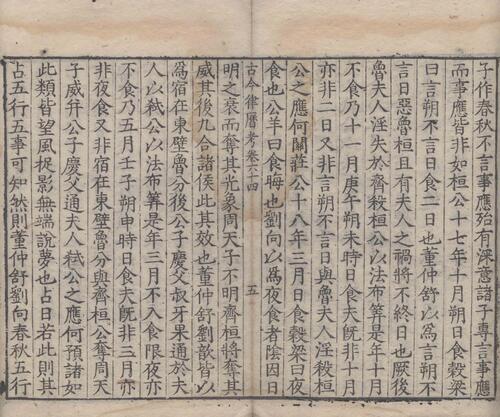 子作春秋不言事應殆有深意諸子專言事應
而事應皆非如桓公十七年十月朔日食穀梁
曰言朔不言日食二日也董仲舒以爲言朔不
言日惡魯桓且有夫人之禍將不終日也厥後
魯夫人淫失於齊殺桓公以法布筭是年十月
不食乃十一月庚午朔未時日食夫旣非十月
亦非二日又非言朔不言日與魯夫人淫殺桓
公之應何關莊公十八年三月日食穀梁曰夜
食也公羊曰食晦也劉向以爲夜食者陰因日
古今律曆考卷六十四 五
明之衰而奪其光象周天子不明齊桓將奪其
威其後九合諸侯此其效也董仲舒劉歆皆以
爲宿在東壁魯分後公子慶父叔牙果通於夫
人以弒公以法布筭是年三月不入食限夜亦
不食乃五月壬子朔申時日食夫旣非三月又
非夜食又非宿在東壁魯分與齊桓公奪周天
子威弁公子慶父通夫人弒公之應何預諸如
此類皆望風捉影無端說夢也占日若此則其
占五行五事可知然則董仲舒劉向春秋五行